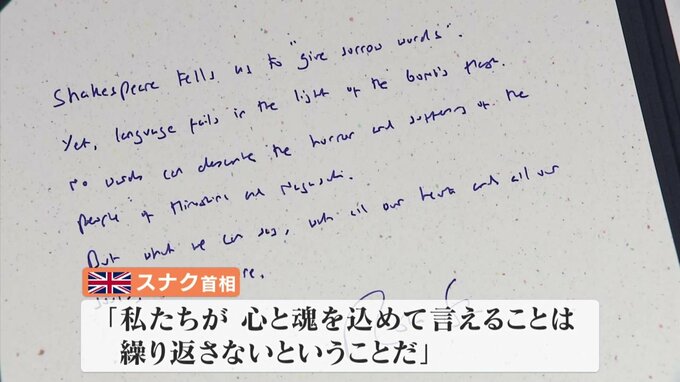 Shakespeare tells us to "give sorrow words".
Yet, language fails in the light of the bomb's flash.
No words can describe the horror and suffering of the
people of Hiroshima and Nagasaki.
But what we can say, with all our hearts and all our
スナク首相
「私たちが 心と魂を込めて言えることは
繰り返さないということだ」